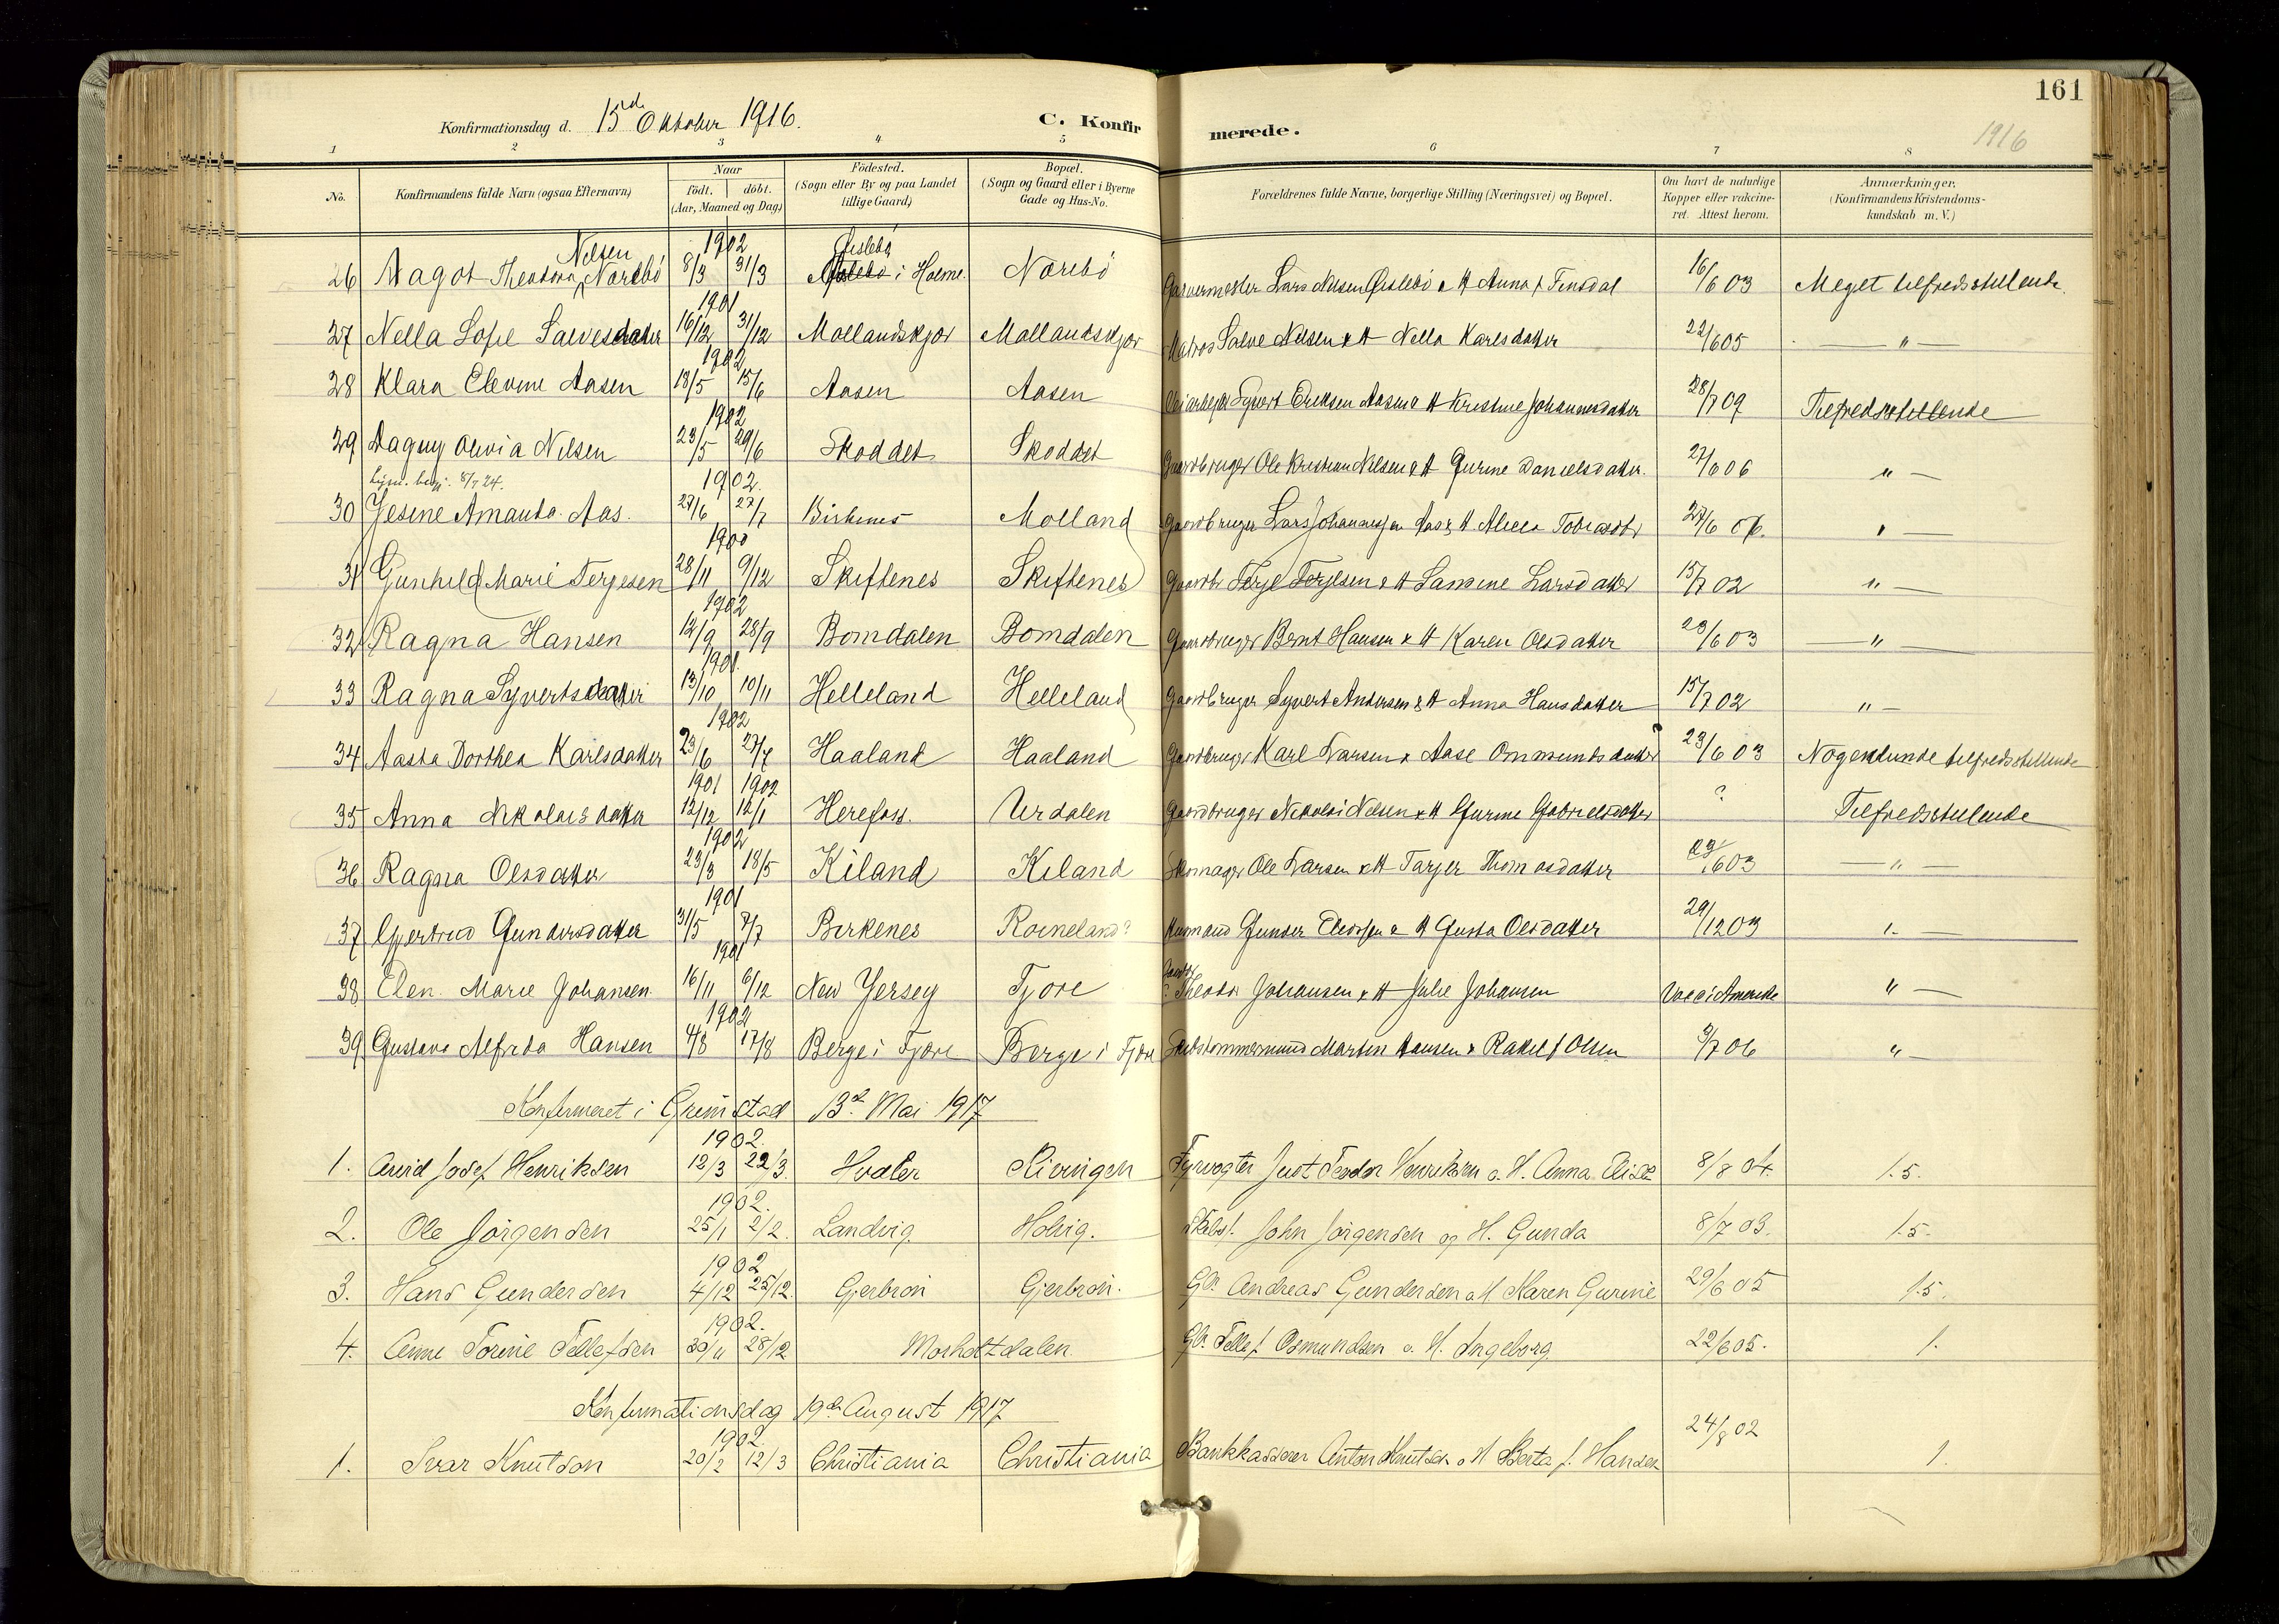 161
1916
Konfirmationsdag d. 15de Oktober 1916. C. Konfirmerede.
1 2 3 4 5 6 7 8
No. Konfirmandens fulde Navn (ogsaa Efternavn) Naar født. døbt. (Aar, Maaned og Dag) Fødested. (Sogn eller By og paa Landet tillige Gaard) Bopæl. (Sogn og Gaard eller i Byerne Gade og Hus-No. Forældrenes fulde Navne, borgerlige Stilling (Næringsvei) og Bopæl. Om havt de naturlige Kopper eller vakcineret. Attest herom. Anmærkninger. (Konfirmandens Kristendomskundskab m. V.)
Nilsen 1902 Øislebø
26 Magot Theodora Nærebø 8/3 31/3 i Holme Nærebø Garvermester Lars Nilsen Øislebø & H Anna f Finsdal 16/6 03 Meget tilfredsstillende.
1901
27 Nella Sofie Salvesdatter 16/12 31/12 Mollandskjær Mollandskjær Matros Salve Nilsen & H Nella Karlsdatter 22/6 05 — " —
1902
28 Klara Elevine Aasen 18/5 15/6 Aasen Aasen Syvert Eriksen Aasen & H Kristine Johannesdatter 28/7 09 Tilfredsstillende
1902
29 Dagny Olivia Nilsen 23/5 29/6 Skoddet Skoddet Gaardbruger Ole Kristian Nilsen & H Gurine Danielsdatter. 27/6 06 " —
8/7 24. 1902.
30 Jesine Amanda Aas. 27/6 27/7 Birkenes Molland Gaardbruger Lars Johannesen Aas & H. Alice Tobiasdtr 27/6 06. " —
1900
31 Gunhild Marie Terjesen 28/11 9/12 Skiftenes Skiftenes Gaardbr Terje Terjesen & H Samine Larsdatter 15/7 02 " —
1902
32 Ragna Hansen 12/9 28/9 Bomdalen Bomdalen Gaardbruger Bernt Hansen & H Karen Olsdatter 23/6 03 — " —
1901.
33 Ragna Syvertsdatter 13/10 10/11 Helleland Helleland Gaardbruger Syvert Andersen & H Anna Hansdatter 15/7 02 " —
1902
34 Aasta Dorthea Karlsdatter 23/6 27/7 Haaland Haaland Gaardbruger Karl Larsen & Aase Ommundsdatter 23/6 03 Nogenlunde tilfredsstillende
1901 1902
35 Anna Nikolaisdatter 12/12 12/1 Herefoss. Urdalen Gaardbruger Nikolai Nilsen & H Gurine Gabrielsdatter ? Tilfredsstillende
1902
36 Ragna Olsdatter 23/3 18/5 Kiland Kiland Skomager Ole Larsen & H Tarjer Thomasdatter 23/6 03 — " —
1901
37 Gjertrud Gundersdatter 31/5 7/7 Birkenes Roineland? Gunder & H Gusta Olsdatter 29/12 03 " —
1901
38 Elen Marie Johansen 16/11 6/12 New Yersey Fjære Theodor Johansen & H Julie Johansen Vacc i Amerika " —
1902
39 Gustava Alfreda Hansen 4/8 17/8 Berge i Fjære Berge i Fjære Skibstømmermand Martin Hansen & Rakel f Olsen 3/7 06 " —
Konfirmeret i Grimstad 13de Mai 1917
1902.
1. Arvid Josef Henriksen 12/3 22/3. Hvaler Rivingen Fyrvogter Just Teodor Henriksen o. H. Anna Elise 8/8 04. 1.5.
1902.
2. Ole Jörgensen 25/1 2/2. Landvig. Holvig. John Jörgensen og H. Gunda 8/7 03. 1.5.
1902
3. Hans Gundersen 4/12 25/12. Gjerbron Gjerbron. Gbr. Andreas Gundersen o H. Maren Gurine 29/6 05 1.5.
1902.
4. Anne Torine Tellefsen 30/11 28/12 Morholtdalen Gbr. Tellef Osmundsen o. H. Ingeborg. 22/6 05. 1.
Konfirmationsdag 19de August 1917
1902.
1. Ivar Knutson 20/2 12/3 Christiania Christiania Bankkasserer Anton Knutson o H Berta f. Hansen 24/8 02 1.